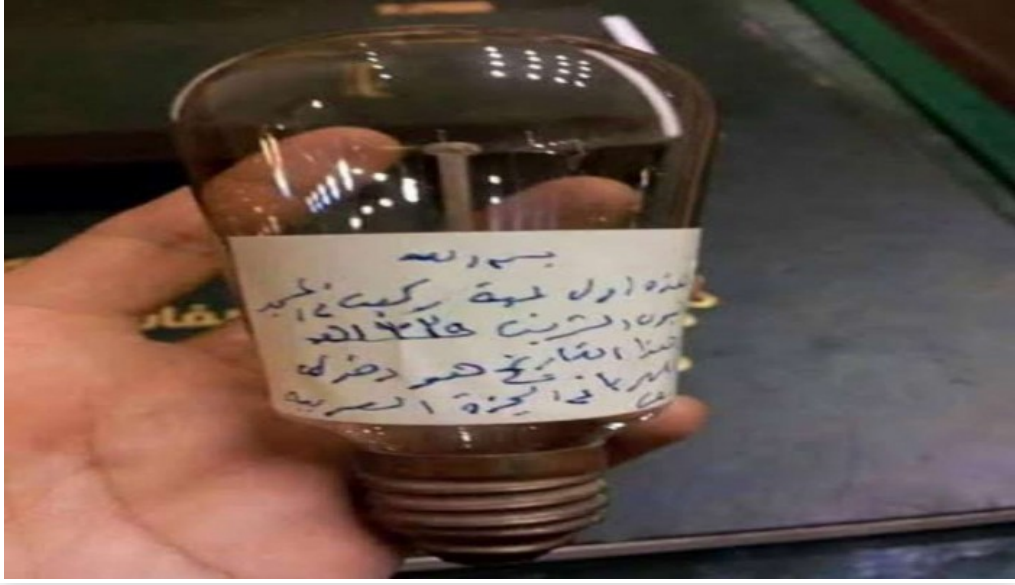 بسم الله
هذه اول لمبة ركبت في المسجد
النبوي الشريف ١٣٢٥ هـ
هذا التاريخ هو دخول
الكهرباء في الجزيرة العربية